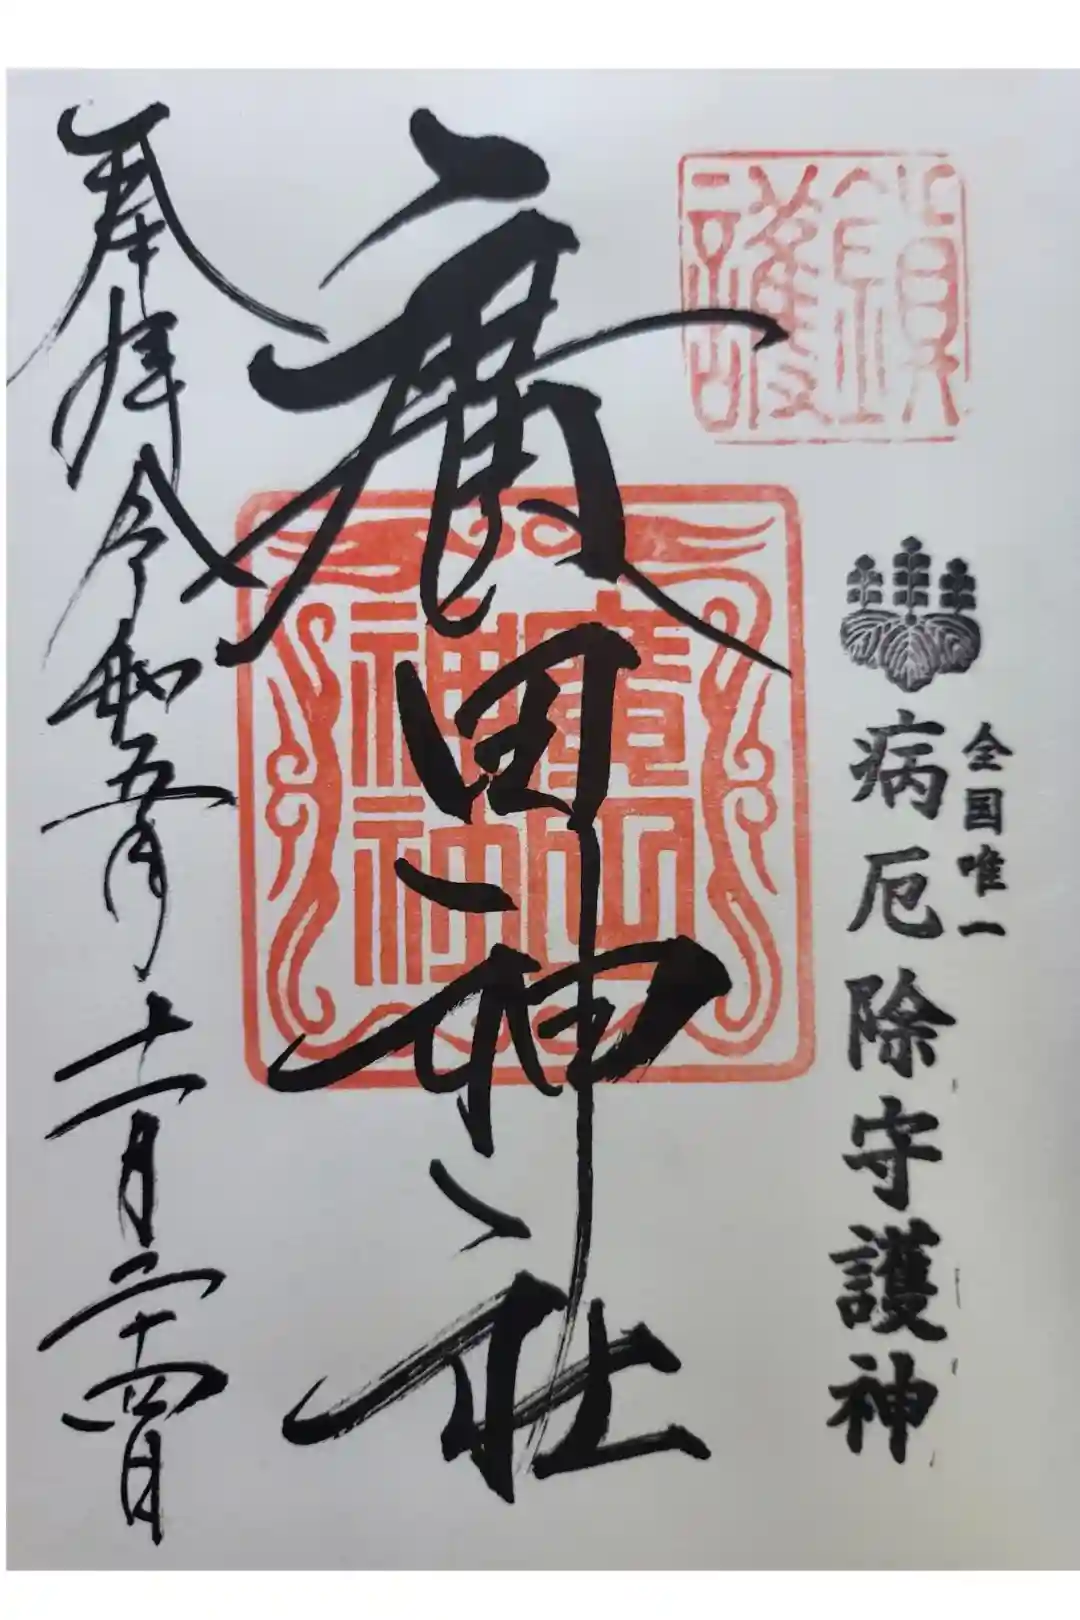 鎭護
全国唯一
病厄除守護神
廣田神社
廣田
神社
奉拝 令和五年十一月二十四日